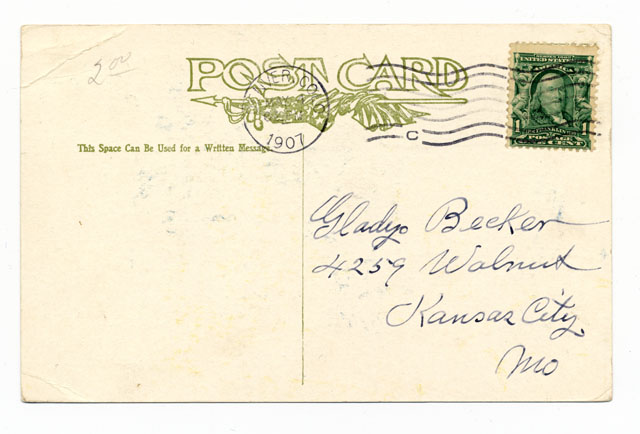 2.00
POST CARD
1907
C
UNITED STATES
AMERICA
1 FRANKLIN 1
POSTAGE
CENT
This Space Can Be Used for a Written Message.
Gladys Becker
4259 Walnut
Kansas City,
Mo